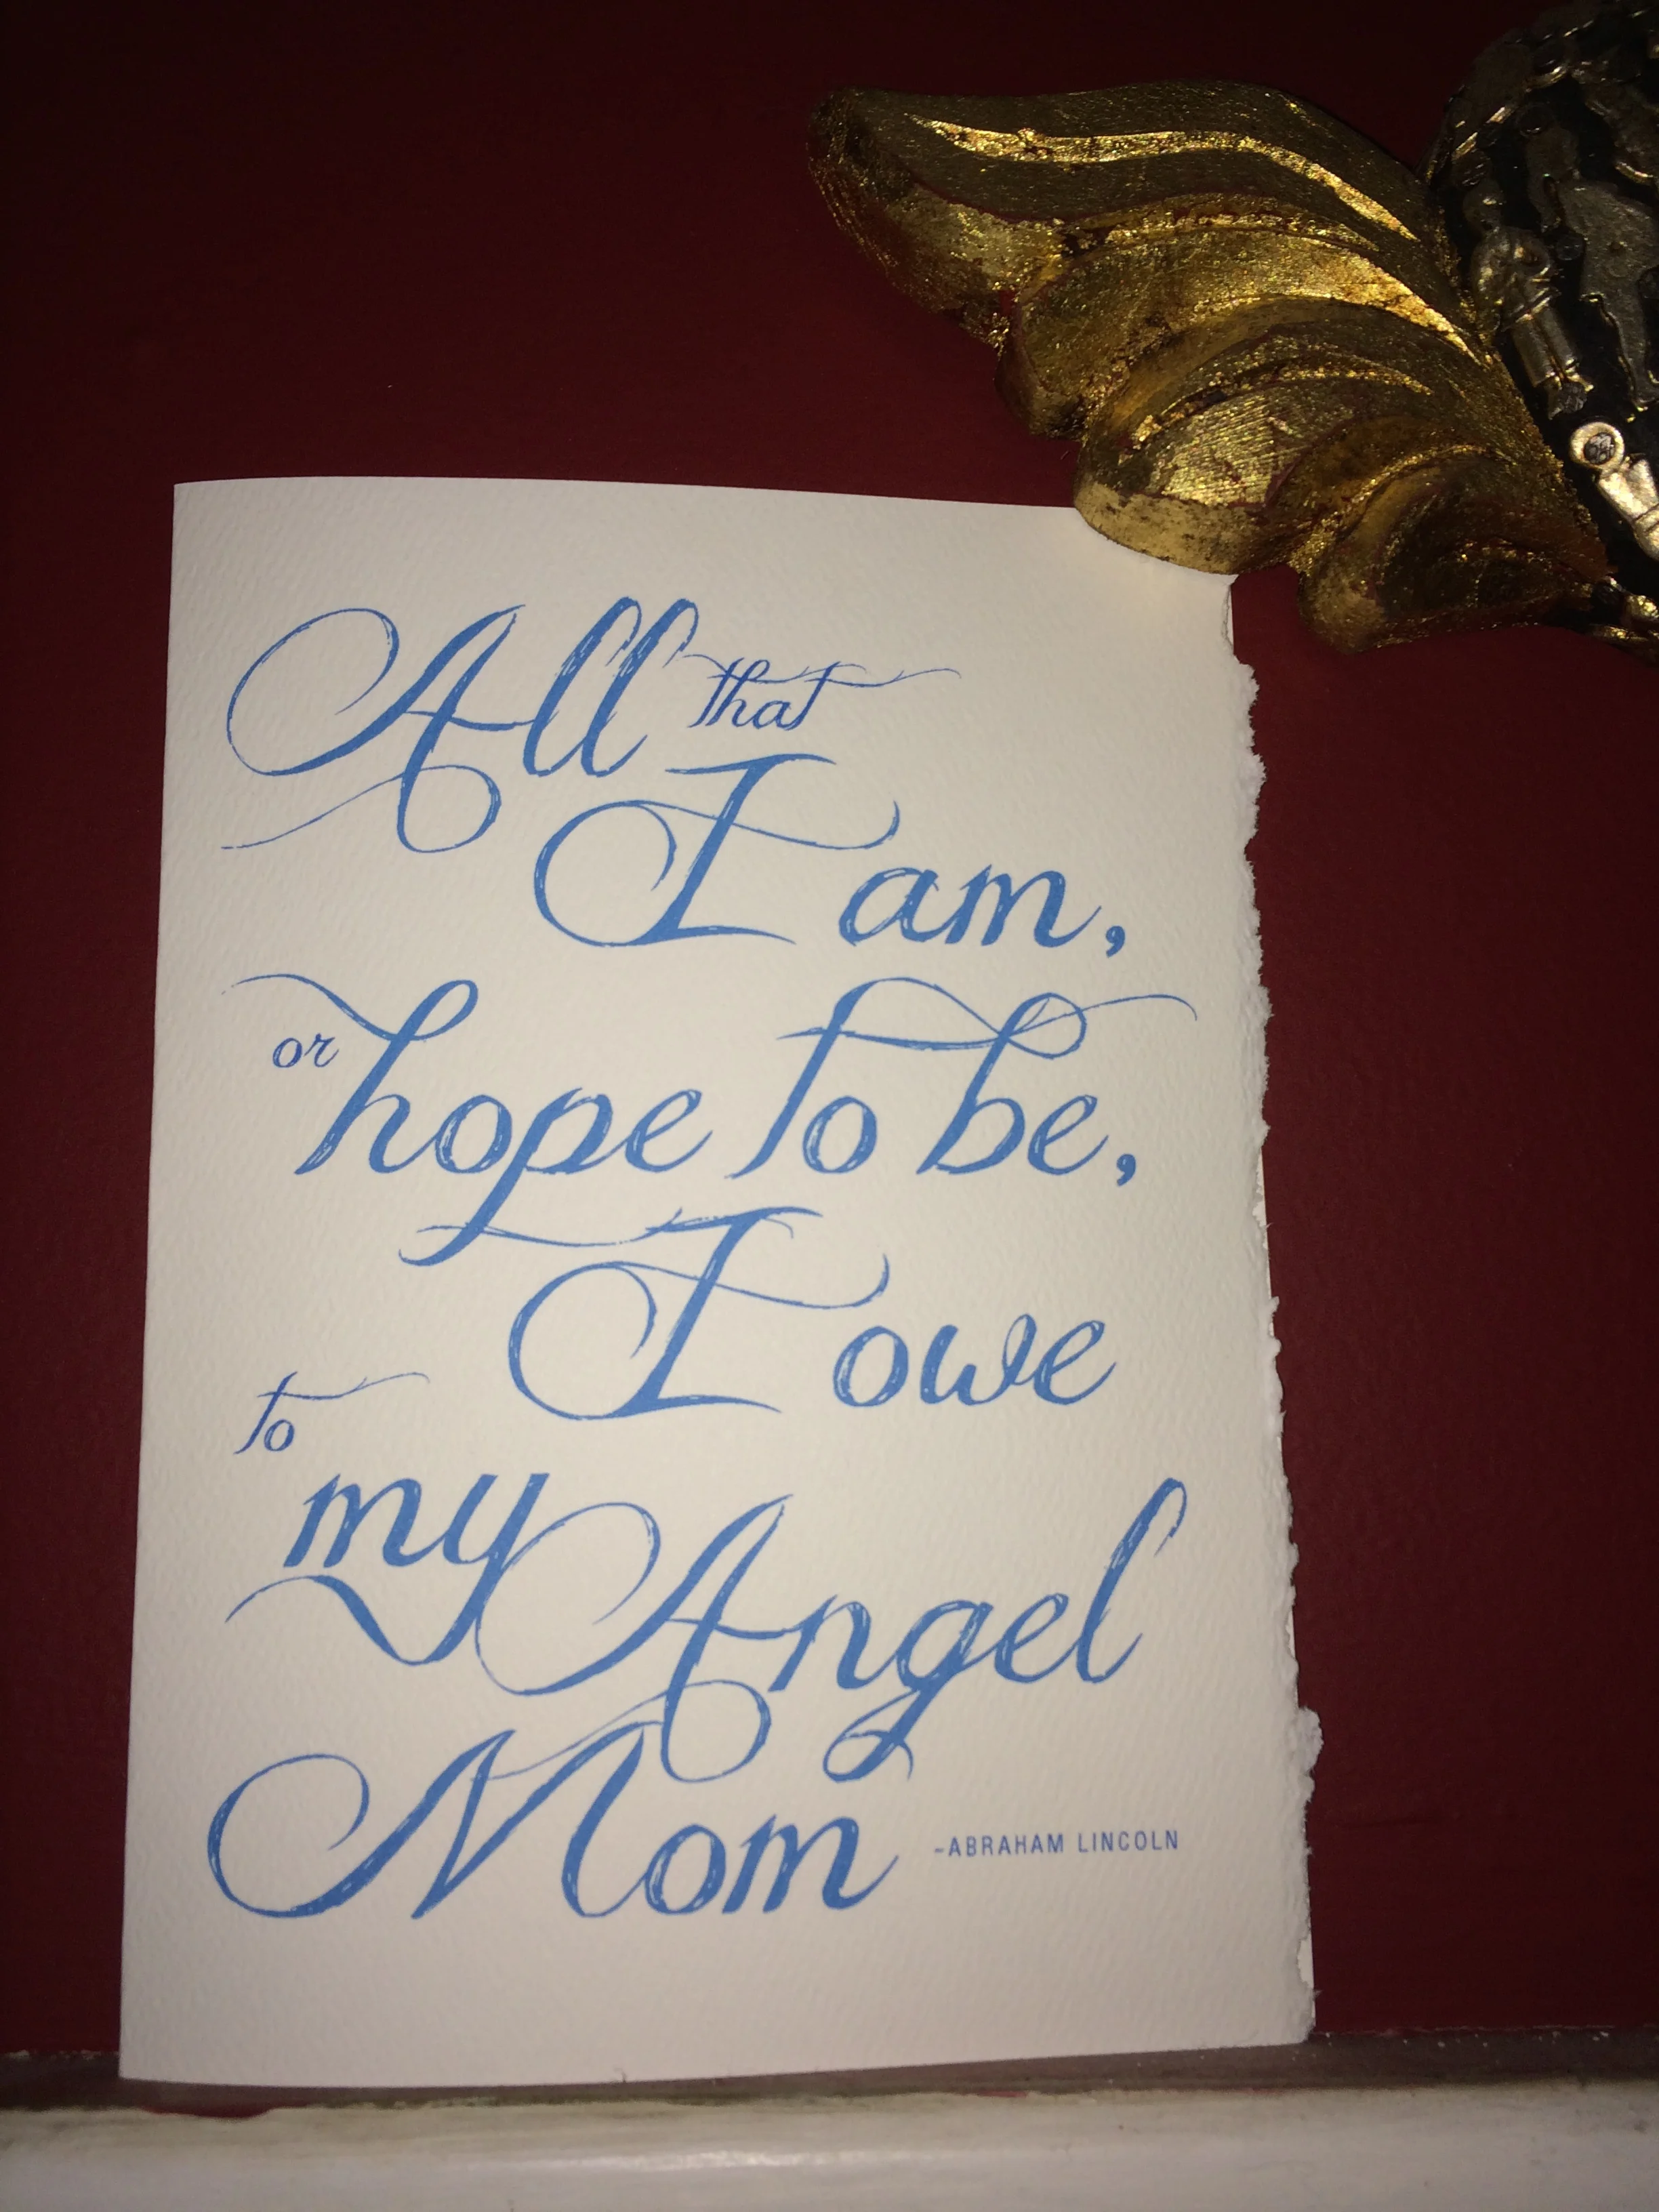 All that
I am,
or hope to be,
I owe
to
my Angel
Mom -ABRAHAM LINCOLN